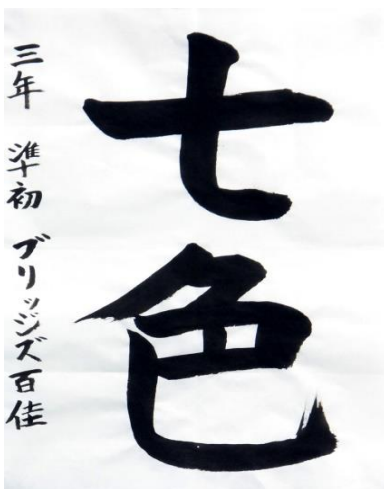 七色
三年 準初 ブリッジズ百佳